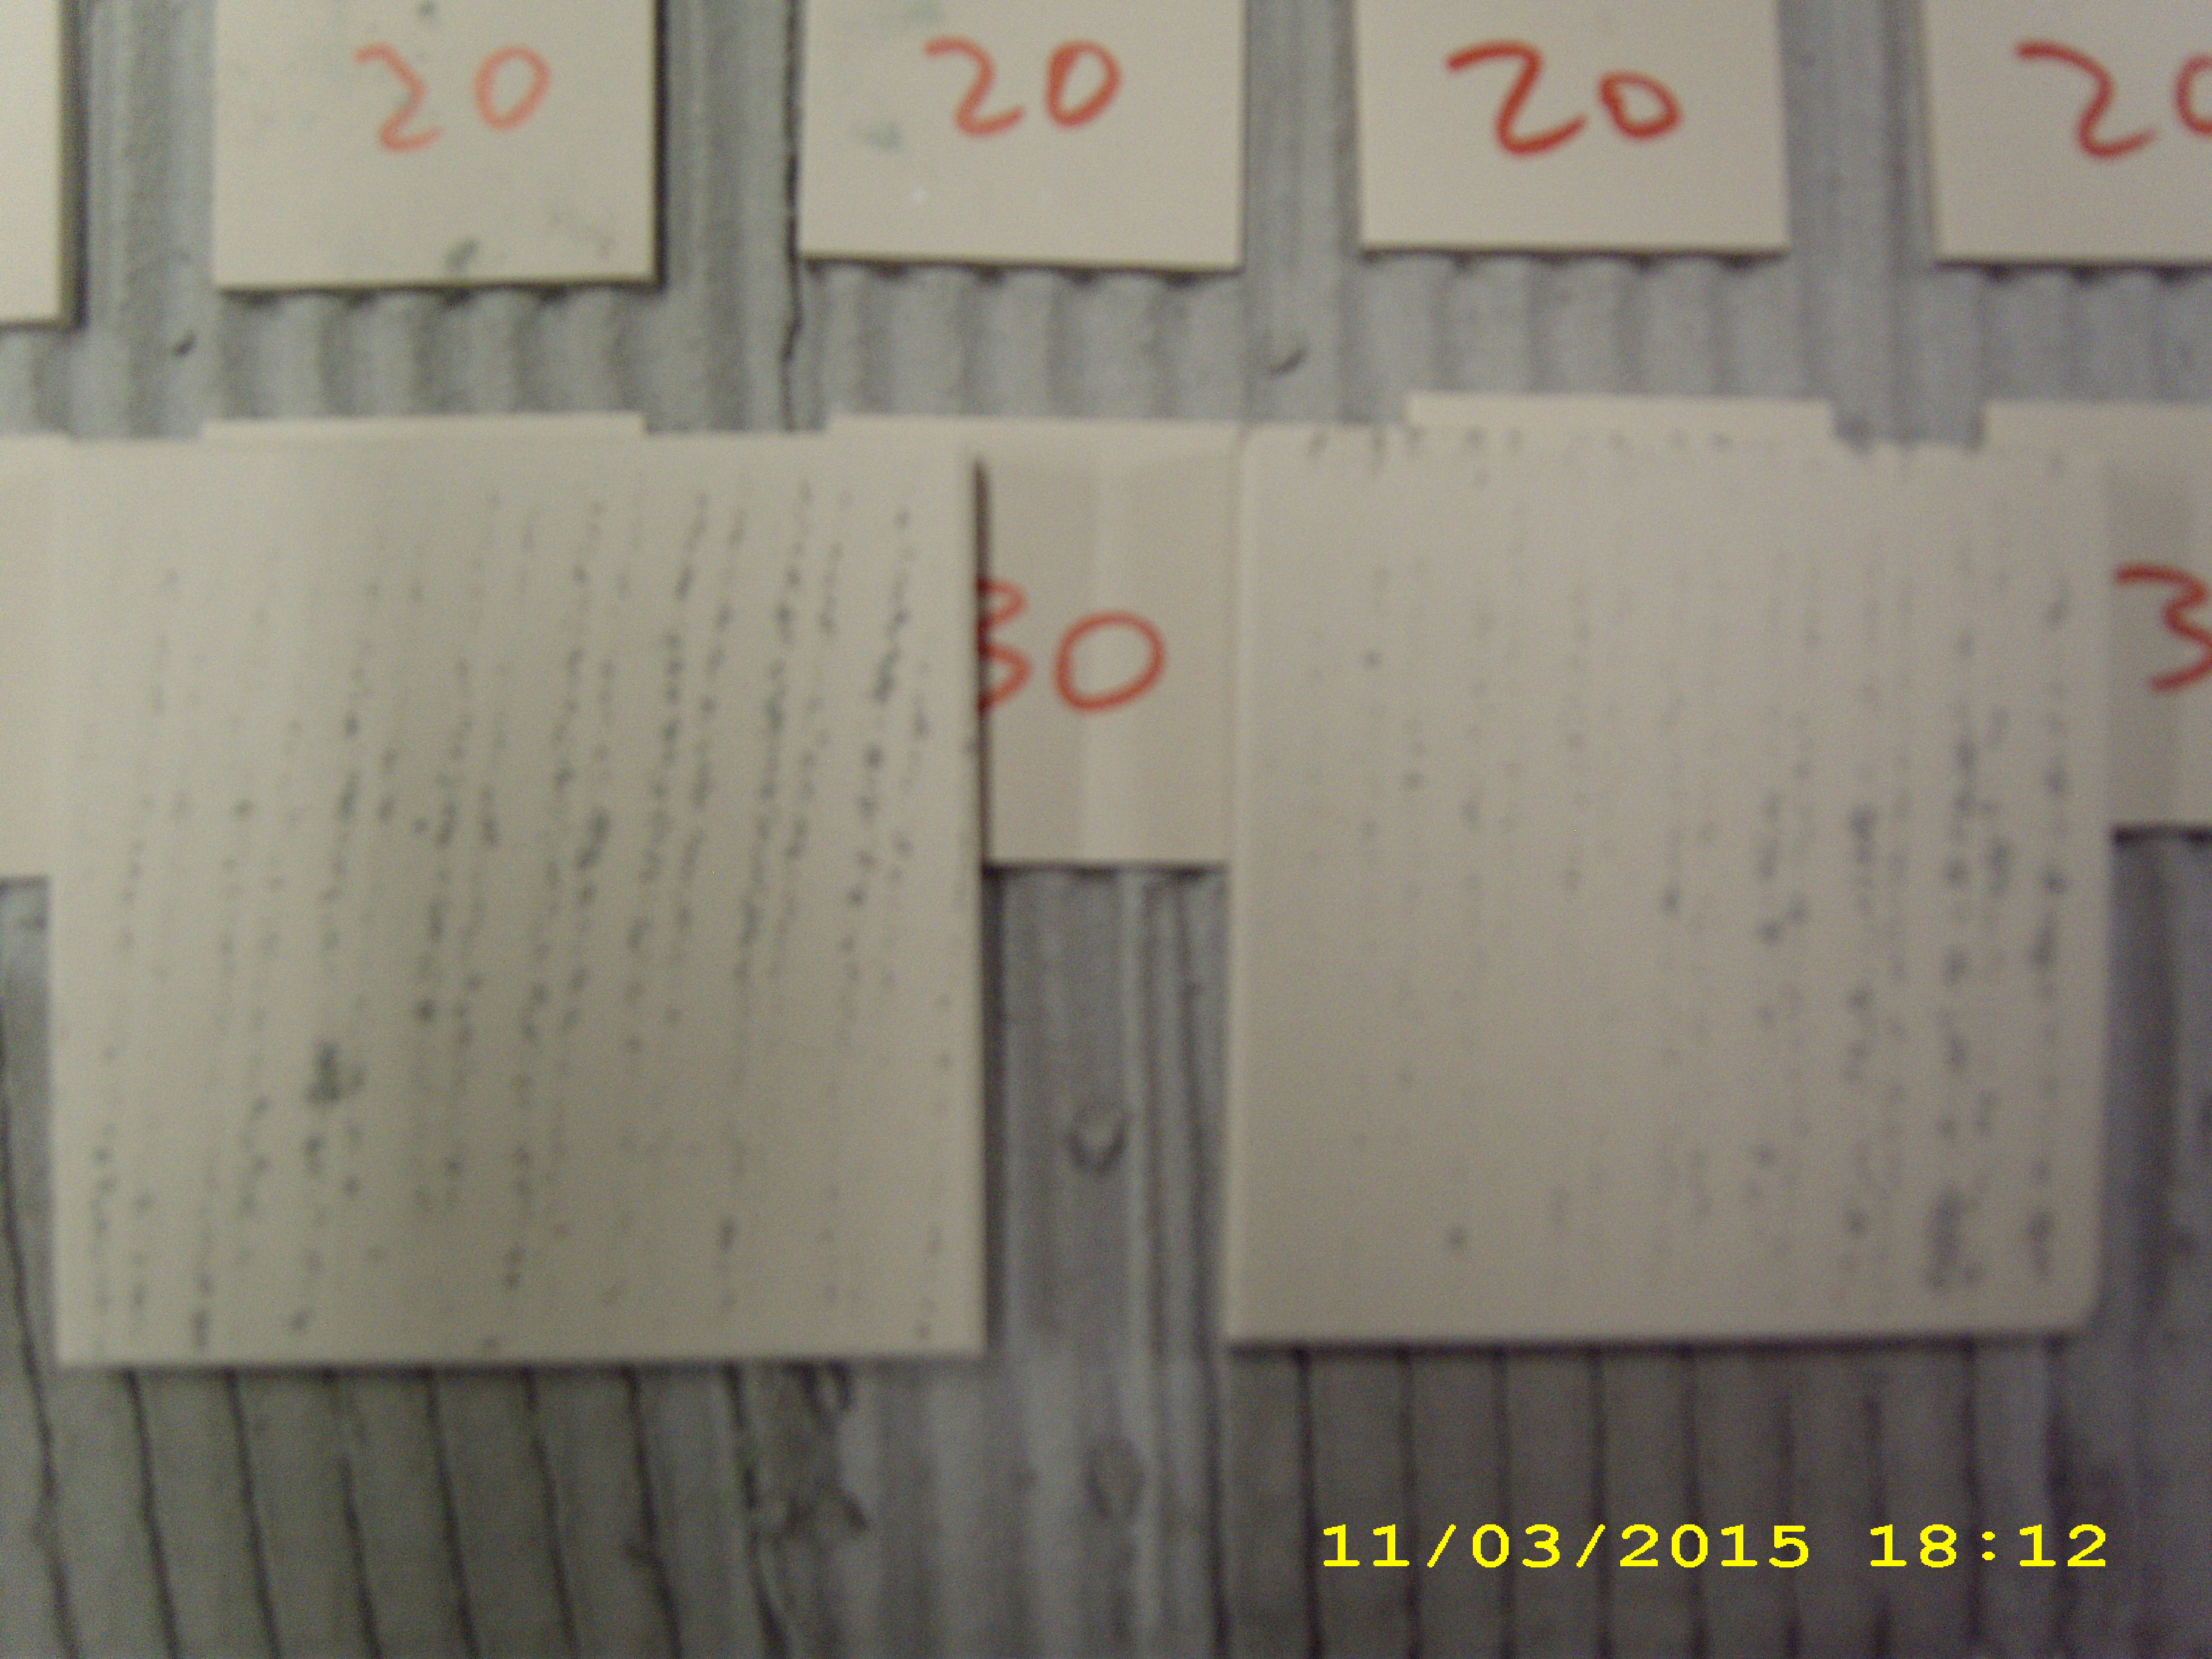 20 20 20 20
30 3
11/03/2015 18:12